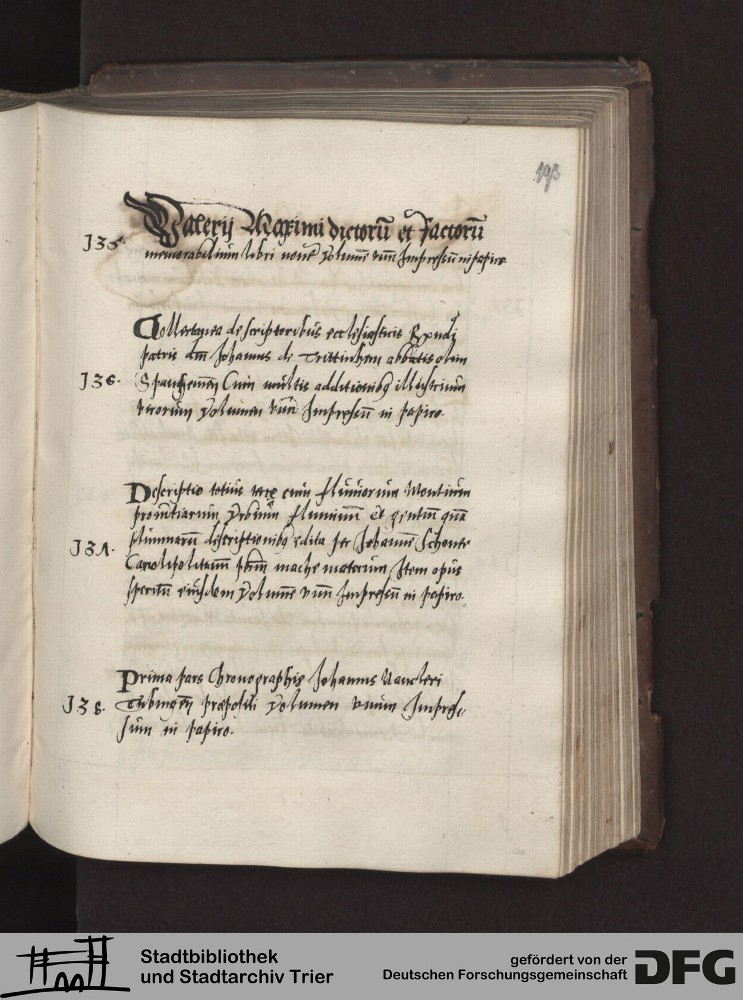 193
Valerij Maximi dictorū et factorū
J35. memorabilium libri novē Volumē vnū Impressū in papiro
Collectanea de scriptoribus ecclesiasticis Rxndi
patris dn̄i Johannis de Trittenhem abbatis olim
J36. Spanhemen̄ Cum multis additionibꝯ illustrium
virorum Volumen vnū Impressū in papiro.
Descriptio totius terrę cum fluuiorum Montium
prouintiarum Vrbium fluminum et gentium quā
plurimarū descriptionibꝯ edita per Johannē Schoner
J3Λ. Carolipolitanū phm̄ mathematicum Item opus
spericū eiusdem Volumē vnū Impressū in papiro.
Prima pars Chronographię Johannis Naucleri
J38. Tubingen̄ prępositi Volumen vnum Impres⸗
sum in papiro.
Stadtbibliothek
und Stadtarchiv Trier
gefördert von der
Deutschen Forschungsgemeinschaft
DFG